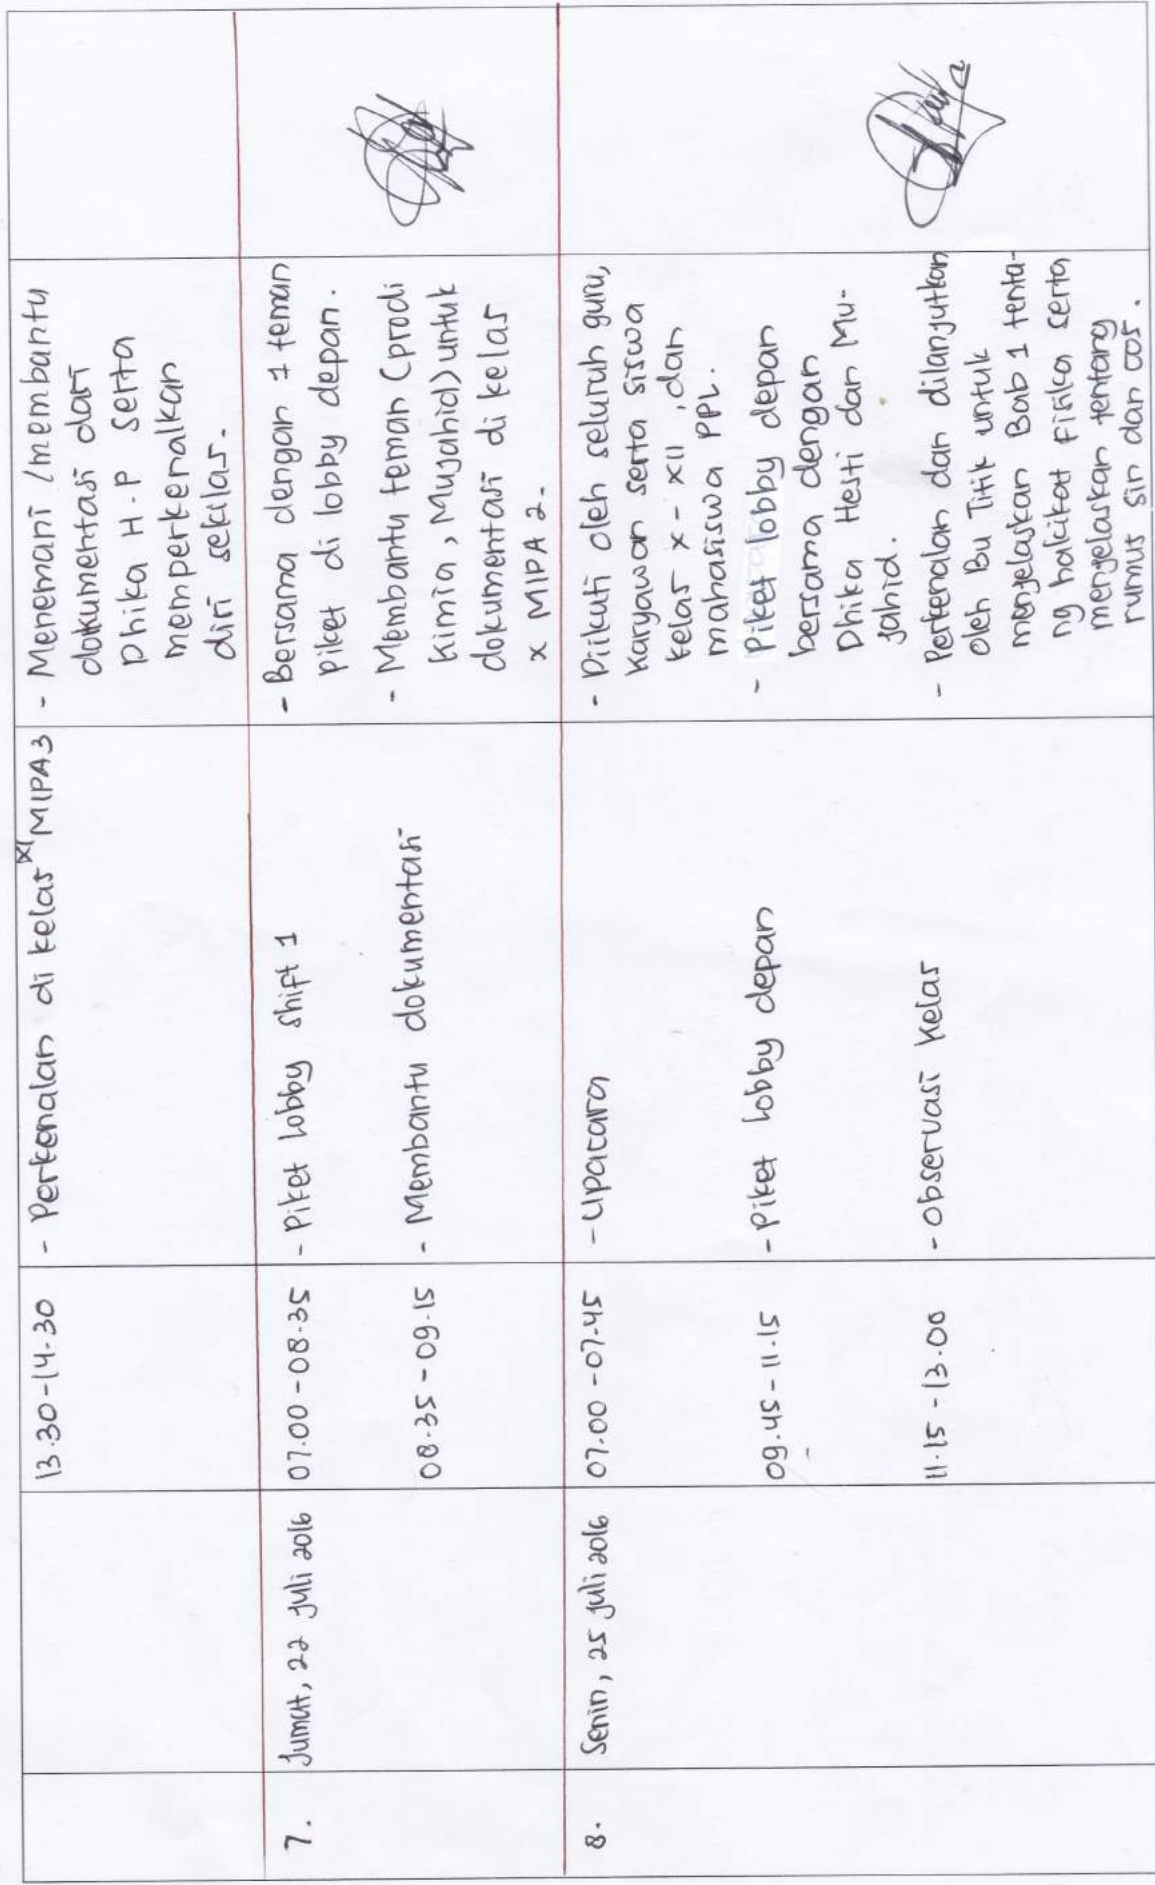 13.30-14.30
- Perkenalan di kelas XI MIPA3
- Menemani /membantu
dokumentasi dari
Dhika H.P serta
memperkenalkan
diri sekilas.
7.
Jumat, 22 Juli 2016
07.00 - 08.35
- Piket Lobby Shift 1
- Bersama dengan 1 teman
piket di lobby depan.
08.35 - 09.15
- Membantu dokumentasi
- Membantu teman (prodi
kimia, Mujahid) untuk
dokumentasi di kelas
X MIPA 2.
8.
Senin, 25 Juli 2016
07.00 - 07.45
- Upacara
- Diikuti oleh seluruh guru,
karyawan serta siswa
kelas X - XII, dan
mahasiswa PPL.
09.45 - 11.15
- Piket Lobby depan
- Piket lobby depan
bersama dengan
Dhika Hesti dan Mu-
jahid.
11.15 - 13.00
- Observasi Kelas
- Perkenalan dan dilanjutkan
oleh Bu Titik untuk
menjelaskan Bab 1 tenta-
ng hakikat Fisika serta
menjelaskan tentang
rumus sin dan cos.